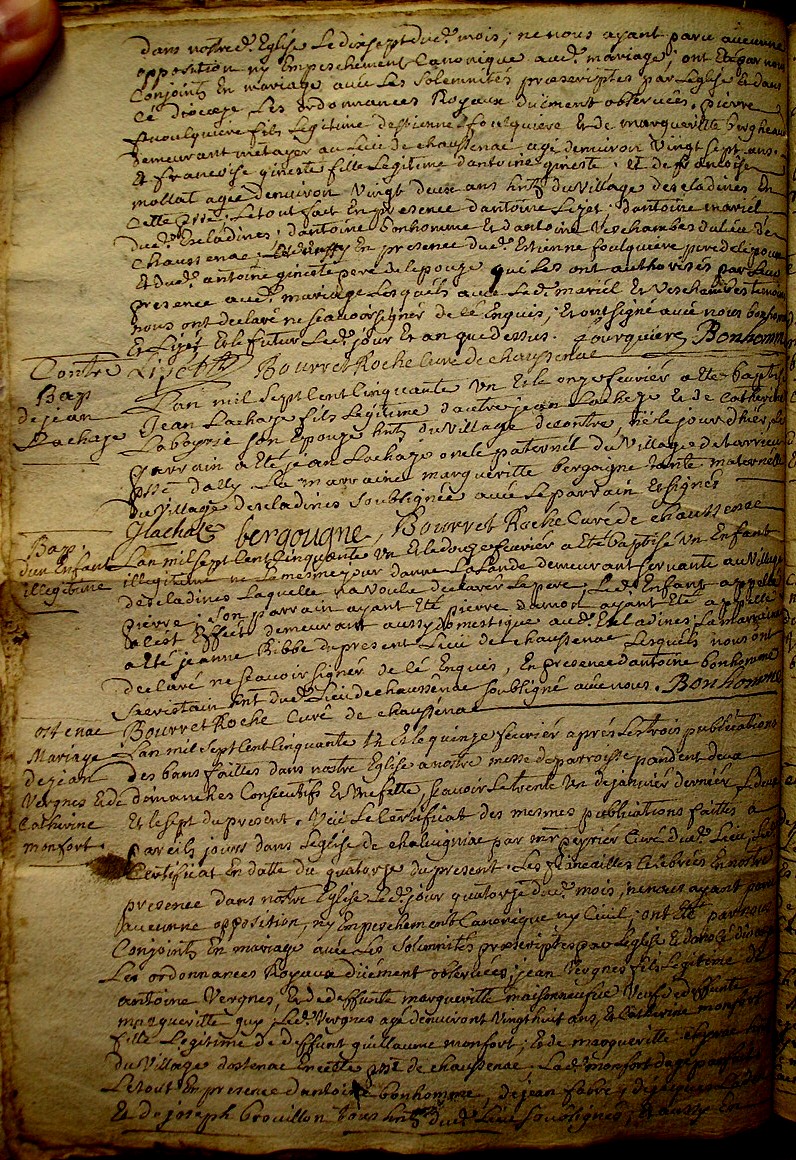 dans nostre d. Eglise Le dixsept dud. mois, ne nous ayant paru aucunne
opposition ny Empeschement Canonique aud. mariage; ont Eté par nous
Conjoints En mariage avec Les Solemnités prœscriptes par Leglise Et dans
Cé diocœse Les ordonnances Royaux düement observées, pierre
fouulquiere fils Legitime destienne foulquiere Et de marguerittte bergheau
demeurant metayer au Lieu de chaussenac agé denviron Vingt Sept ans.
Et francoise gineste fille Legitime dantoine gineste et de francoise
mollat agée denviron Vingt deux ans hnts du Village descladines En
Cette psse. Le tout fait En presence dantoine Lizet; dantoine mariel
dud. Escladines, dantoine bonhomme Et dantoine Veschambes du Lieu de
Chaussenac; En presence dud. Estienne foulquiere pere de lepoux
Et dud. antoine gineste pere de lepouze qui Les ont authorisés par Leur
presence aud. mariage Lesquels avec Led. mariel Et Veschambes temoins
nous ont declaré ne Scavoir signer de cé Enquis, Et ont signé avec nous bonhomme
Et Lizet Et le futur Led. jour Et an que dessus. fourquiere Bonhomme
Lizet Bourret Roche Curé de chaussenac
Contre
Bap
de jean
Lachaze
Lan mil Sept Cent Cinquante Un Et le onze fevrier a Eté baptisé
Jean Lachaze fils Legitime dautre jean Lachaze Et de Catherine
Laboyrie Son Epouze hnts du Village de contre, né le jour dhier, Le
parrain a Eté jean Lachaze oncle paternel du Village de
psse dally La marraine margueritte bergougne tante maternelle
du Village descladines Soubsignée avec Le parrain Et signés
JLachaze bergougne, Bourret Roche Curé de chaussenac
Bap.
dun Enfant
illegitime
Lan mil Sept Cent Cinquante Un Et le douze fevrier a Eté baptisé Un Enfant
illegitime né Le mesme jour danne Lalande demeurant servante au Village
descladines Laquelle na voulu declarer Le pere, Led. Enfant appellé
pierre; Son parrain ayant Eté pierre damon ayant Eté appellé
a cest Effét demeurant aussy domestique aud. Escladines La marraine
a Eté jeanne Bibbe du present Lieu de chaussenac Lesquels nous ont
declaré ne Scavoir signer de cé Enquis, En presence dantoine bonhomme
Sacristain hnt dud. Lieu de chaussénac soubsigné avec nous. Bonhomme
Bourret Roche Curé de chaussénac
ostenac
Mariage
de jean
Vergnes Et de
Catherine
monfort.
Lan mil Sept Cent Cinquante Un Et le quinze fevrier aprés Les trois publications
des bans faittes dans nostre Eglise a nostre messe de parroisse pendent deux
dimanches Consecutifs Et Une feste, Scavoir Le trente Un de janvier dernier
Et le Sept du present. Veü Le Certificat des mesmes publications faittes a
pareils jours dans Leglise de chalvignac par mr peyrier Curé dud. Lieu,
Certificat En datte du quatorze du present. Les fiancailles Celebrées En nostre
presence dans nostre Eglise Led. jour quatorze dud. mois, ne nous ayant paru
aucunne opposition, ny Empeschement Canonique ny Civil; ont Eté par nous
Conjoints En mariage avec Les Solemnités prœscriptes par Leglise
Les ordonnances Royaux düement observées, jean Vergnes fils Legitime de
antoine Vergnes, Et de deffunte margueritte maisonneufve Veuf de deffunte
margueritte Led. Vergnes agé denviront Vingt huit ans, Et Catherine monfort
fille Legitime de deffunt guillaume monfort; Et de margueritte
du Village dostenac En cette psse de chaussenac Lad. monfort
Le tout En presence dantoine bonhomme, de jean fabre
Et de joseph brouillon tous hnts dud. Lieu Soubsignés, Et aussy En